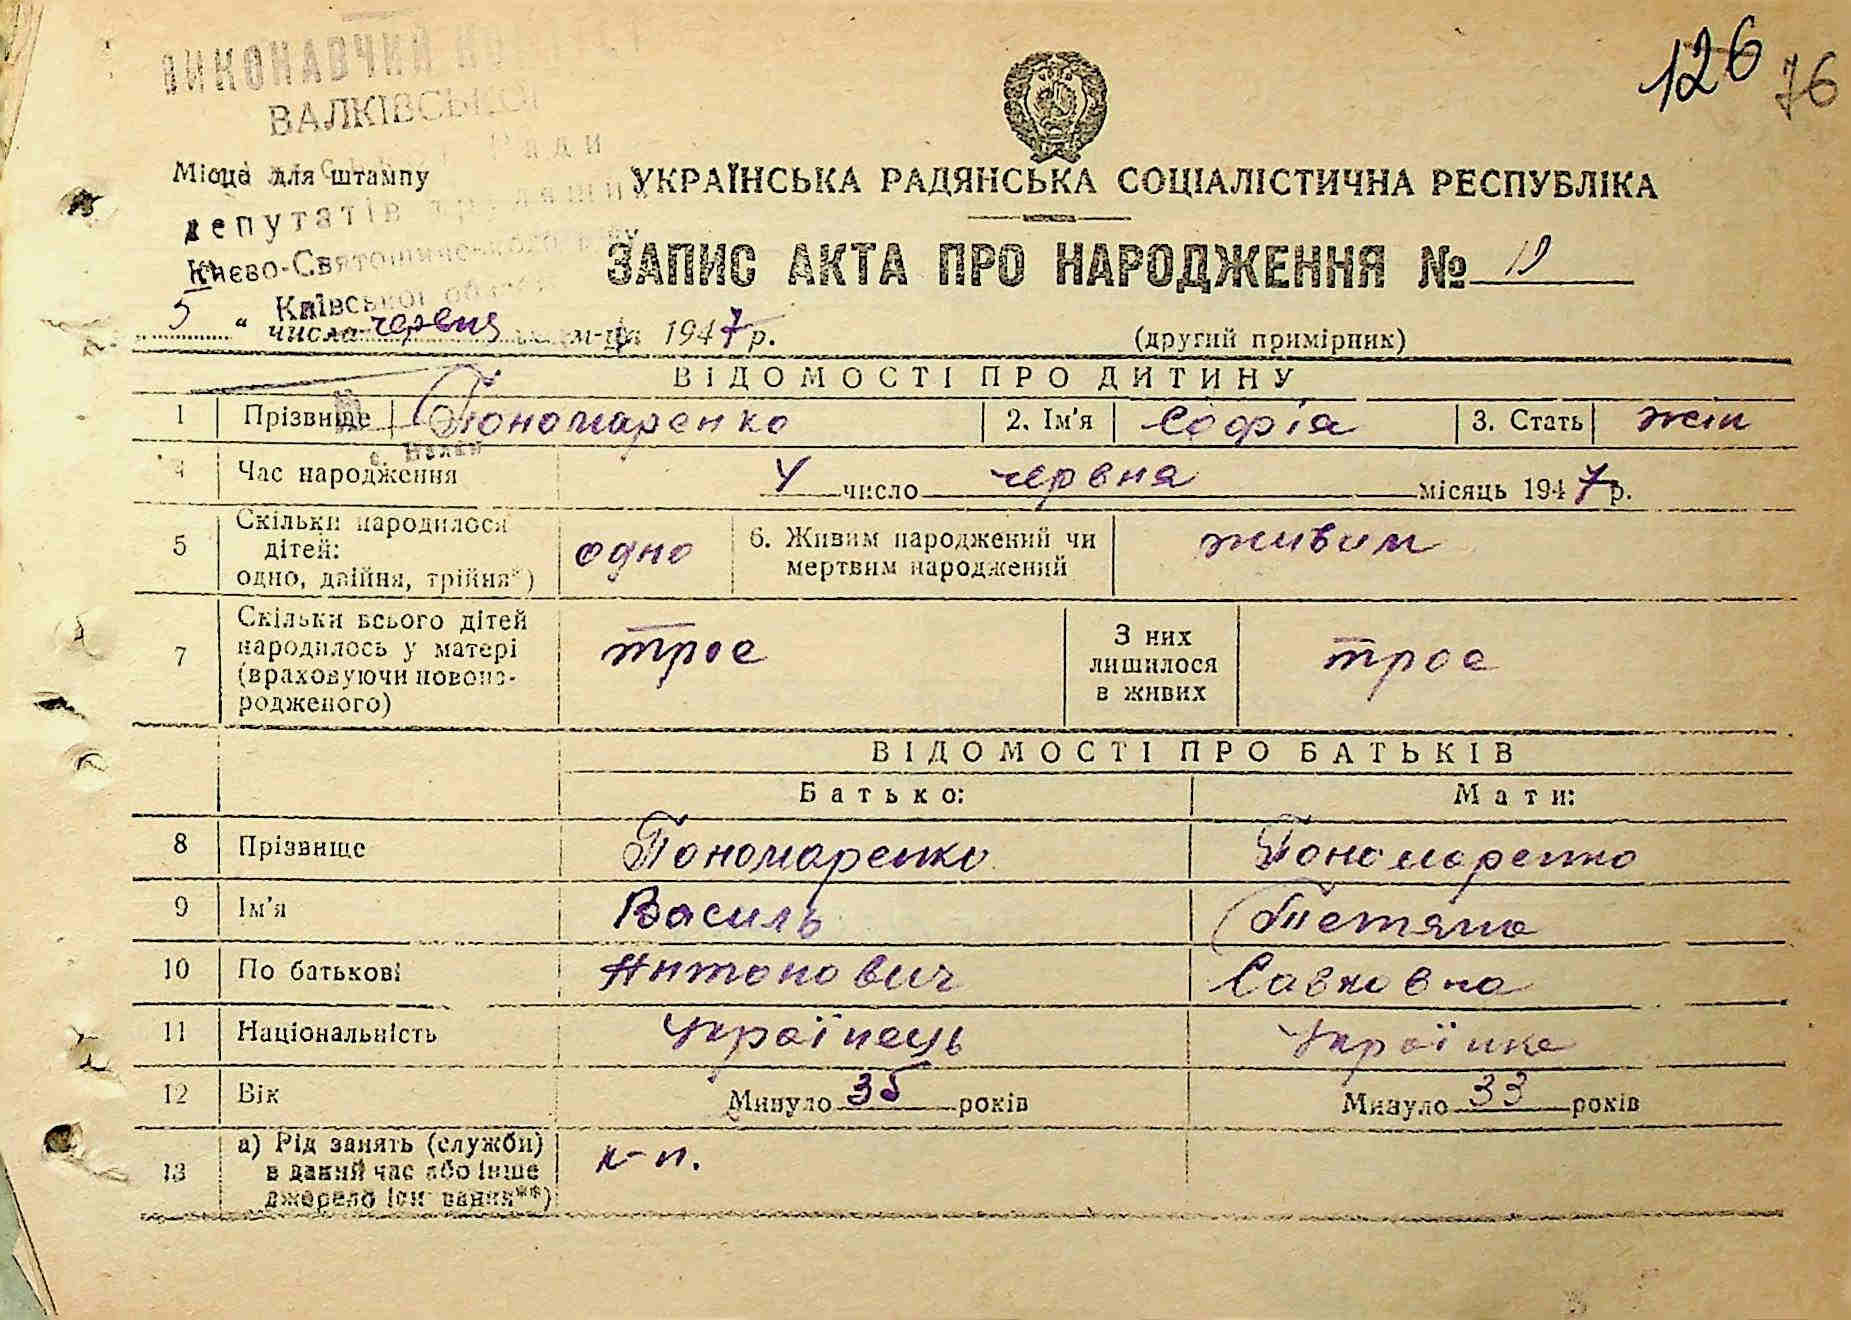 126 76
ВИКОНАВЧИЙ
ВАЛКІВСЬКОЇ
Ради
Місце для штампу
депутатів трудящих
Києво-Святошинського р-ну
Київської області
УКРАЇНСЬКА РАДЯНСЬКА СОЦІАЛІСТИЧНА РЕСПУБЛІКА
ЗАПИС АКТА ПРО НАРОДЖЕННЯ № 10
5 " числа червня м-ця 1947 р.
(другий примірник)
ВІДОМОСТІ ПРО ДИТИНУ
1 Прізвище Пономаренко 2. Ім'я Софія 3. Стать жін
4 Час народження 4 число червня місяць 1947 р.
5 Скільки народилося дітей: одно, двійня, трійня*) одно 6. Живим народжений чи мертвим народжений живим
7 Скільки всього дітей народилось у матері (враховуючи новонародженого) троє З них лишилося в живих троє
ВІДОМОСТІ ПРО БАТЬКІВ
Батько: Мати:
8 Прізвище Пономаренко Пономаренко
9 Ім'я Василь Тетяна
10 По батькові Антонович Савковна
11 Національність Українець Українка
12 Вік Минуло 35 років Минуло 33 років
13 а) Рід занять (служби) в даний час або інше джерело існування**) к-п.